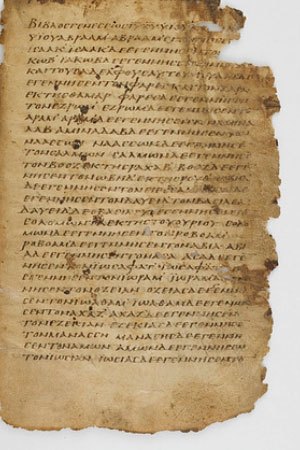 ΒΙΒΛΟϹΓΕΝΕϹΕΩϹ
ΥΙΟΥΑΒΡΑΑΜ ΑΒΡΑΑΜ
ΙϹΑΑΚ ΙϹΑΑΚΔΕΕΓΕΝΝΗϹΕΝ
ΚΩΒ ΙΑΚΩΒΔΕΕΓΕΝΝΗϹΕΝ
ΚΑΙΤΟΥϹΑΔΕΛΦΟΥϹΑΥΤΟΥ ΙΟΥΔΑϹΔΕ
ΕΓΕΝΝΗϹΕΝΤΟΝΦΑΡΕϹΚΑΙΤΟΝΖΑΡΑ
ΕΚΤΗϹΘΑΜΑΡ ΦΑΡΕϹΔΕΕΓΕΝΝΗϹΕ
ΤΟΝΕΖΡΩΜ ΕΖΡΩΜΔΕΕΓΕΝΝΗϹΕΝ
ΑΡΑΜ ΑΡΑΜΔΕΕΓΕΝΝΗϹΕΝΤΟΝΑΜΙΝΑ
ΔΑΒ ΑΜΙΝΑΔΑΒΔΕΕΓΕΝΝΗϹΕΝΤΟΝ
ΝΑΑϹϹΩ ΝΑΑϹϹΩΝΔΕΕΓΕΝΝΗϹΕΝ
ΤΟΝϹΑΛΜΩΝ ϹΑΛΜΩΝΔΕΕΓΕΝΝΗϹΕ
ΤΟΝΒΟΕΖΕΚΤΗϹΡΑΧΑΒ ΒΟΕΖΔΕΕΓΕ
ΝΗϹΕΝΤΟΝΙΩΒΗΔΕΚΤΗϹΡΟΥΘ
ΔΕΕΓΕΝΝΗϹΕΝΤΟΝΙΕϹϹΑΙ ΙΕϹϹΑΙΔΕ
ΕΓΕΝΝΗϹΕΝΤΟΝΔΑΥΕΙΔΤΟΝΒΑϹΙΛΕΑ
ΔΑΥΕΙΔΔΕΟΒΑϹΙΛΕΥϹΕΓΕΝΝΗϹΕΝΤΟΝ
ϹΟΛΟΜΩΝΑΕΚΤΗϹΤΟΥΟΥΡΙΟΥ ϹΟΛΟ
ΜΩΝΔΕΕΓΕΝΝΗϹΕΝΤΟΝΡΟΒΟΑΜ
ΡΟΒΟΑΜΔΕΕΓΕΝΝΗϹΕΝΤΟΝΑΒΙΑ ΑΒΙ
ΑΔΕΕΓΕΝΝΗϹΕΝΤΟΝΑϹΑ ΑϹΑΔΕΕΓΕΝ
ΝΗϹΕΝΤΟΝΙΩϹΑΦΑΤ ΙΩϹΑΦΑΤΔΕ
ΕΓΕΝΝΗϹΕΝΤΟΝΙΩΡΑΜ ΙΩΡΑΜΔΕΕΓΕΝ
ΝΗϹΕΝΤΟΝΟΖΕΙΑΝ ΟΖΕΙΑϹΔΕΕΓΕΝΝΗ
ϹΕΝΤΟΝΙΩΑΘΑΜ ΙΩΑΘΑΜΔΕΕΓΕΝΝΗ
ϹΕΝΤΟΝΑΧΑΖ ΑΧΑΖΔΕΕΓΕΝΝΗϹΕΝ
ΤΟΝΕΖΕΚΙΑΝ ΕΖΕΚΙΑϹΔΕΕΓΕΝΝΗϹΕ
ΤΟΝΜΑΝΑϹϹΗ ΜΑΝΑϹϹΗϹΔΕΕΓΕΝΝΗ
ϹΕΝΤΟΝΑΜΩΝ ΑΜΩΝΔΕΕΓΕΝΝΗϹΕΝ
ΤΟΝΙΩϹΙΑΝ ΙΩϹΙΑϹΔΕΕΓΕΝΝΗϹΕΝΤΟ